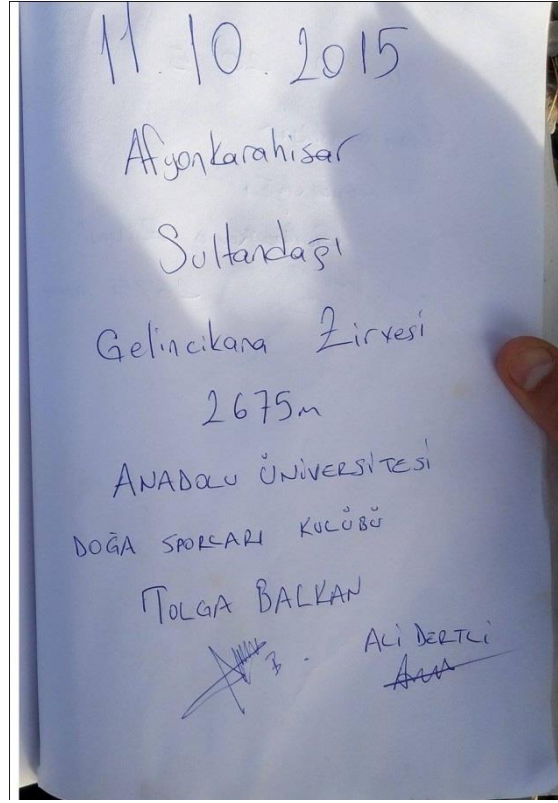 11.10.2015
Afyonkarahisar
Sultandağı
Gelincikana Zirvesi
2675m
ANADOLU ÜNİVERSİTESİ
DOĞA SPORLARI KULÜBÜ
TOLGA BALKAN
ALİ DERTLİ